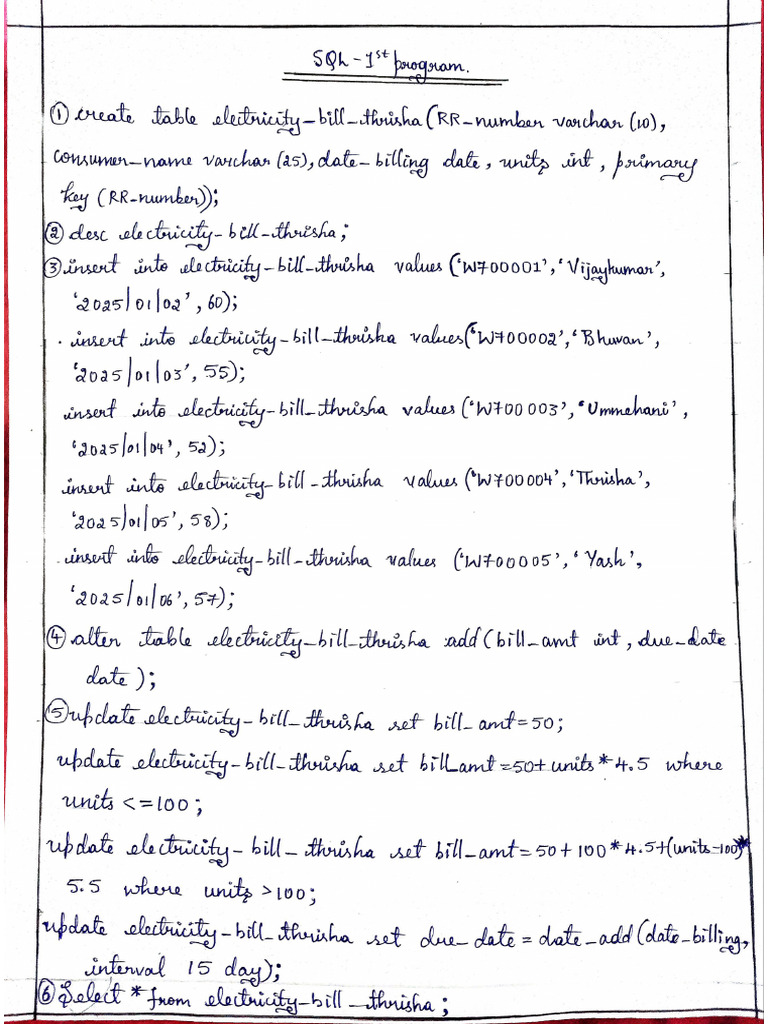 SQL - 1st program.
① create table electricity_bill_thrisha (RR_number varchar (10),
consumer_name varchar (25), date_billing date, units int, primary
key (RR_number));
② desc electricity_bill_thrisha;
③ insert into electricity_bill_thrisha values ('W700001', 'Vijaykumar',
'2025/01/02', 60);
. insert into electricity_bill_thrisha values ('W700002', 'Bhuvan',
'2025/01/03', 55);
insert into electricity_bill_thrisha values ('W700003', 'Ummehani',
'2025/01/04', 52);
insert into electricity_bill_thrisha values ('W700004', 'Thrisha',
'2025/01/05', 58);
insert into electricity_bill_thrisha values ('W700005', 'Yash',
'2025/01/06', 57);
④ alter table electricity_bill_thrisha add (bill_amt int, due_date
date);
⑤ update electricity_bill_thrisha set bill_amt=50;
update electricity_bill_thrisha set bill_amt=50+units*4.5 where
units <=100;
update electricity_bill_thrisha set bill_amt=50+100*4.5+(units-100)*
5.5 where units >100;
update electricity_bill_thrisha set due_date = date_add(date_billing,
interval 15 day);
⑥ Select * from electricity_bill_thrisha;